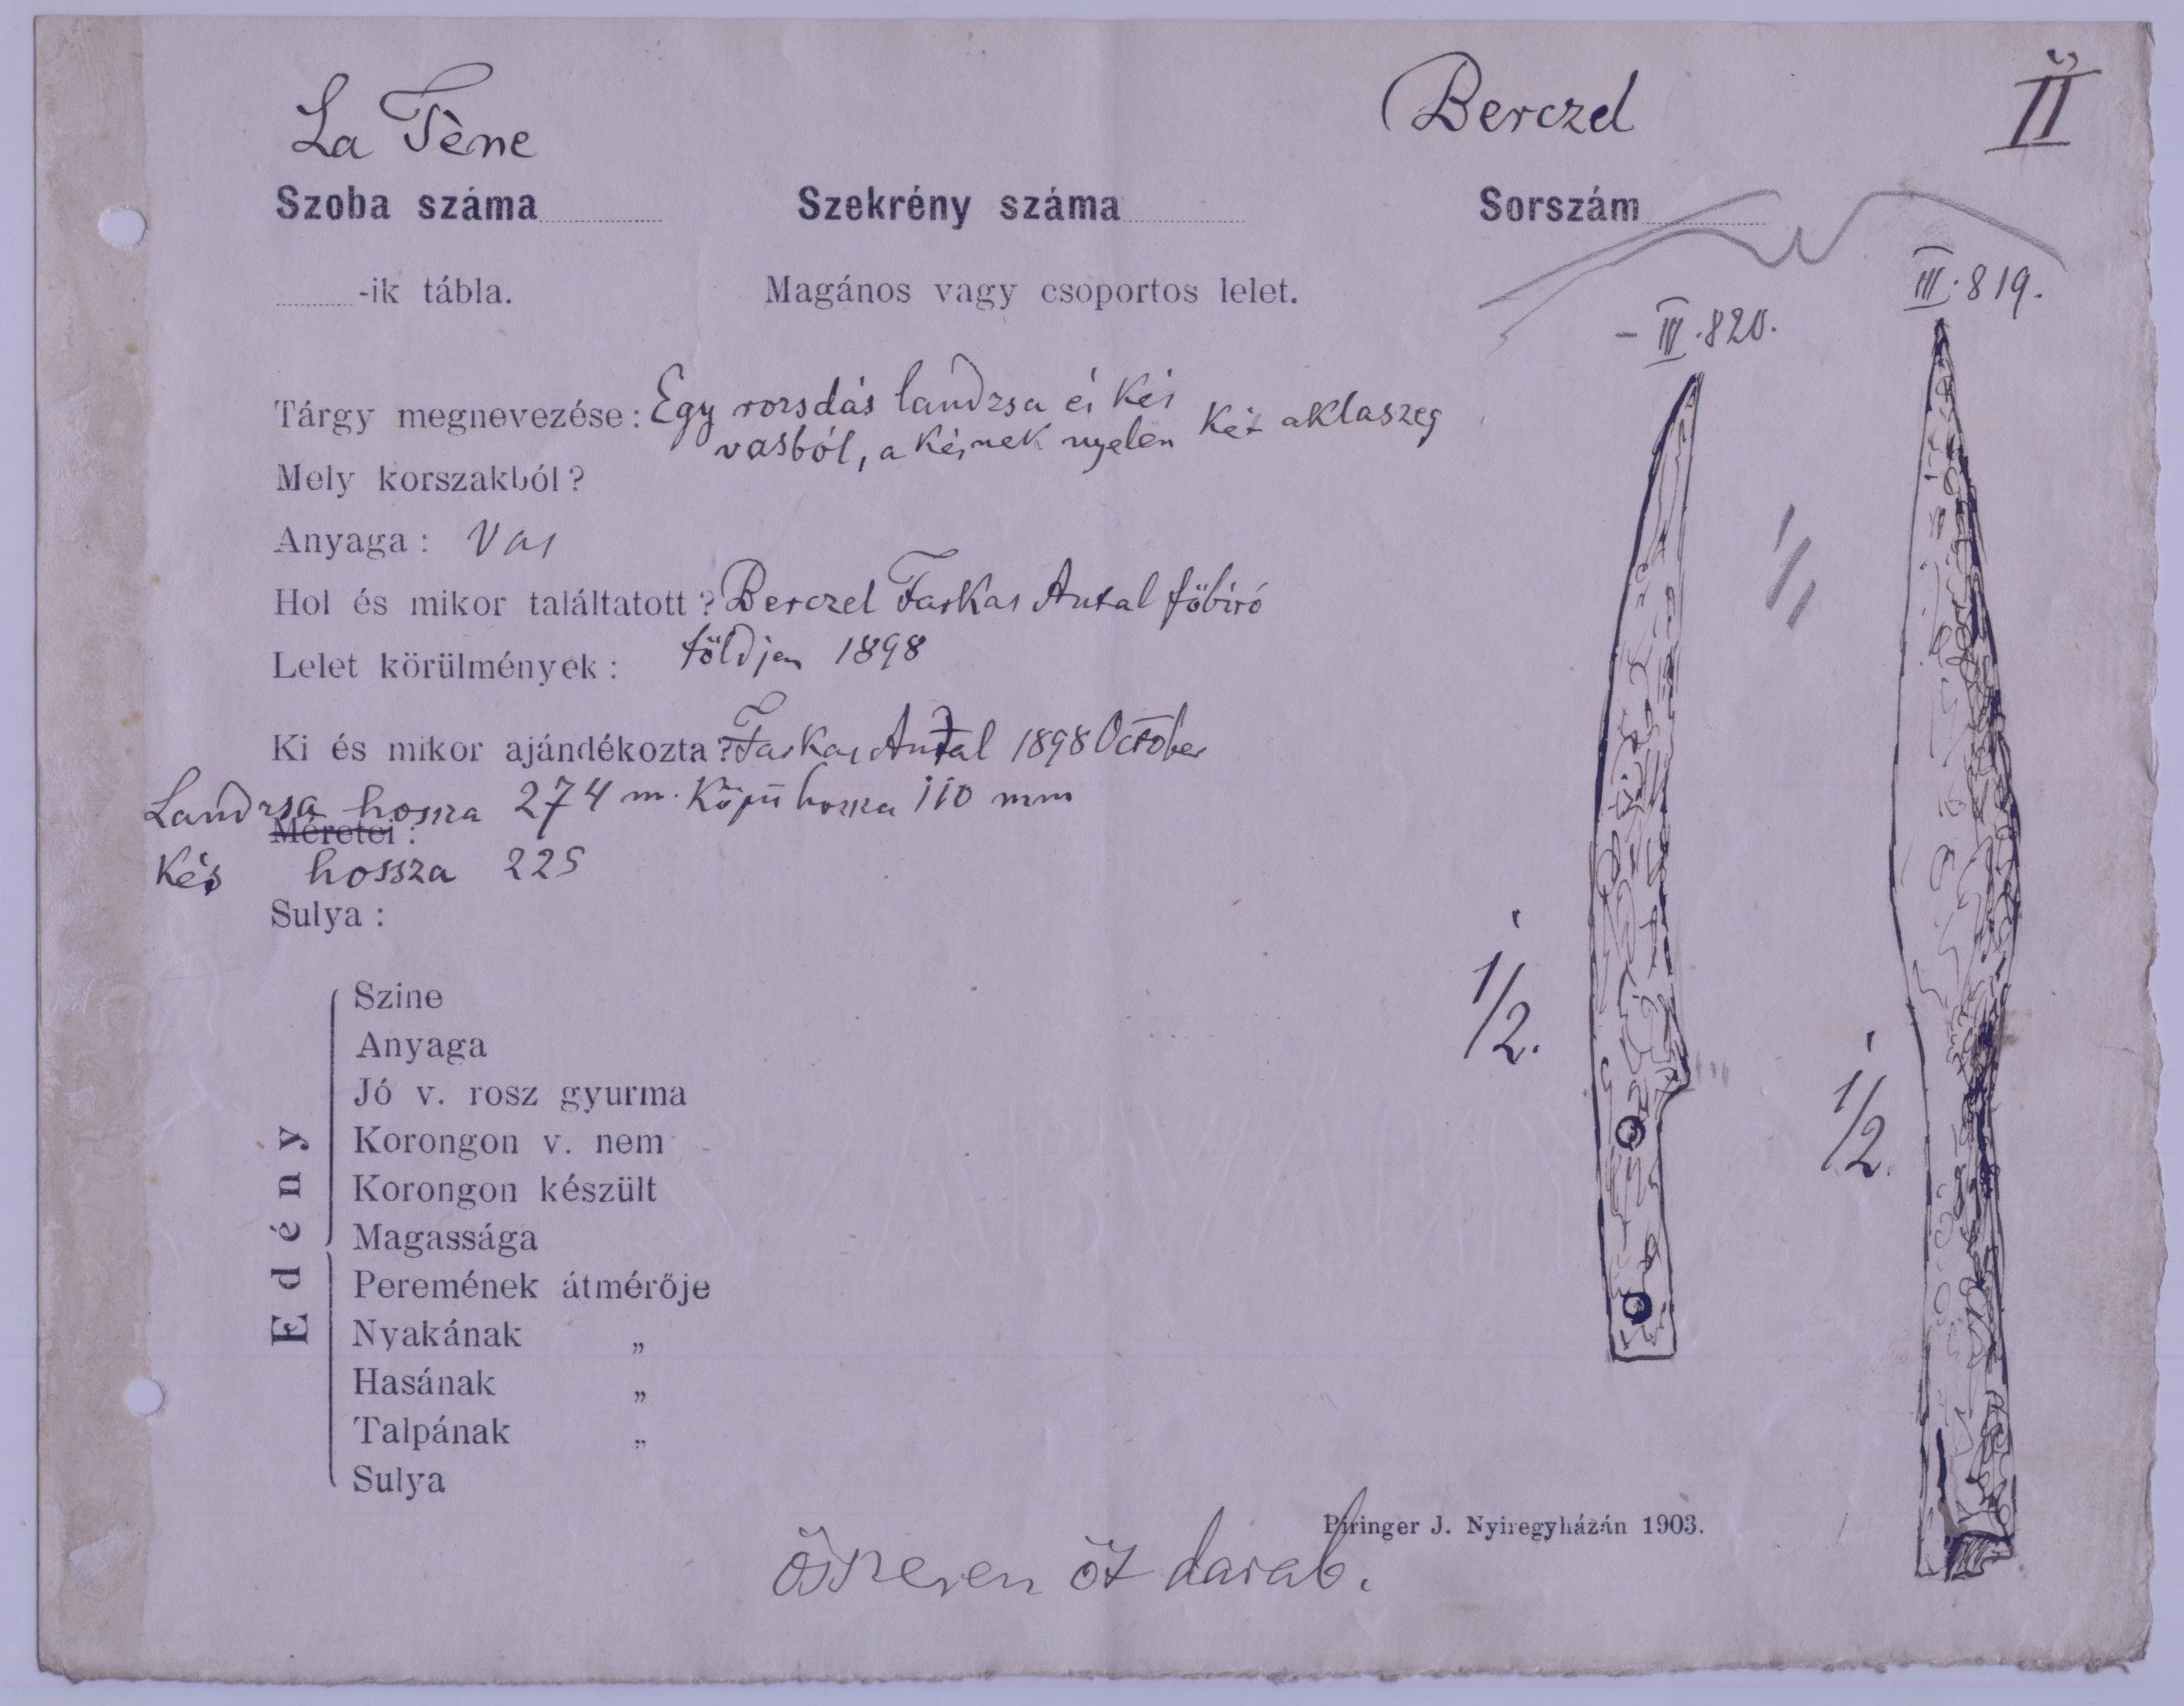 La Tène
Berczel
II
Szoba száma
Szekrény száma
Sorszám
-ik tábla.
Magános vagy csoportos lelet.
III. 819.
III. 820.
Tárgy megnevezése: Egy rozsdás landzsa és kés
vasból, a késnek nyelén két aklaszeg
Mely korszakból?
Anyaga: Vas
1/1
Hol és mikor találtatott? Berczel Farkas Antal főbiró
Lelet körülmények: földjén 1898
Ki és mikor ajándékozta? Farkas Antal 1898 October
Landzsa hossza 274 m. Köpü hossza 110 mm
Méretei:
Kés hossza 225
Sulya:
1/2.
1/2.
Edény
Szine
Anyaga
Jó v. rosz gyurma
Korongon v. nem
Korongon készült
Magassága
Peremének átmérője
Nyakának „
Hasának „
Talpának „
Sulya
Piringer J. Nyiregyházán 1903.
összesen öt darab.